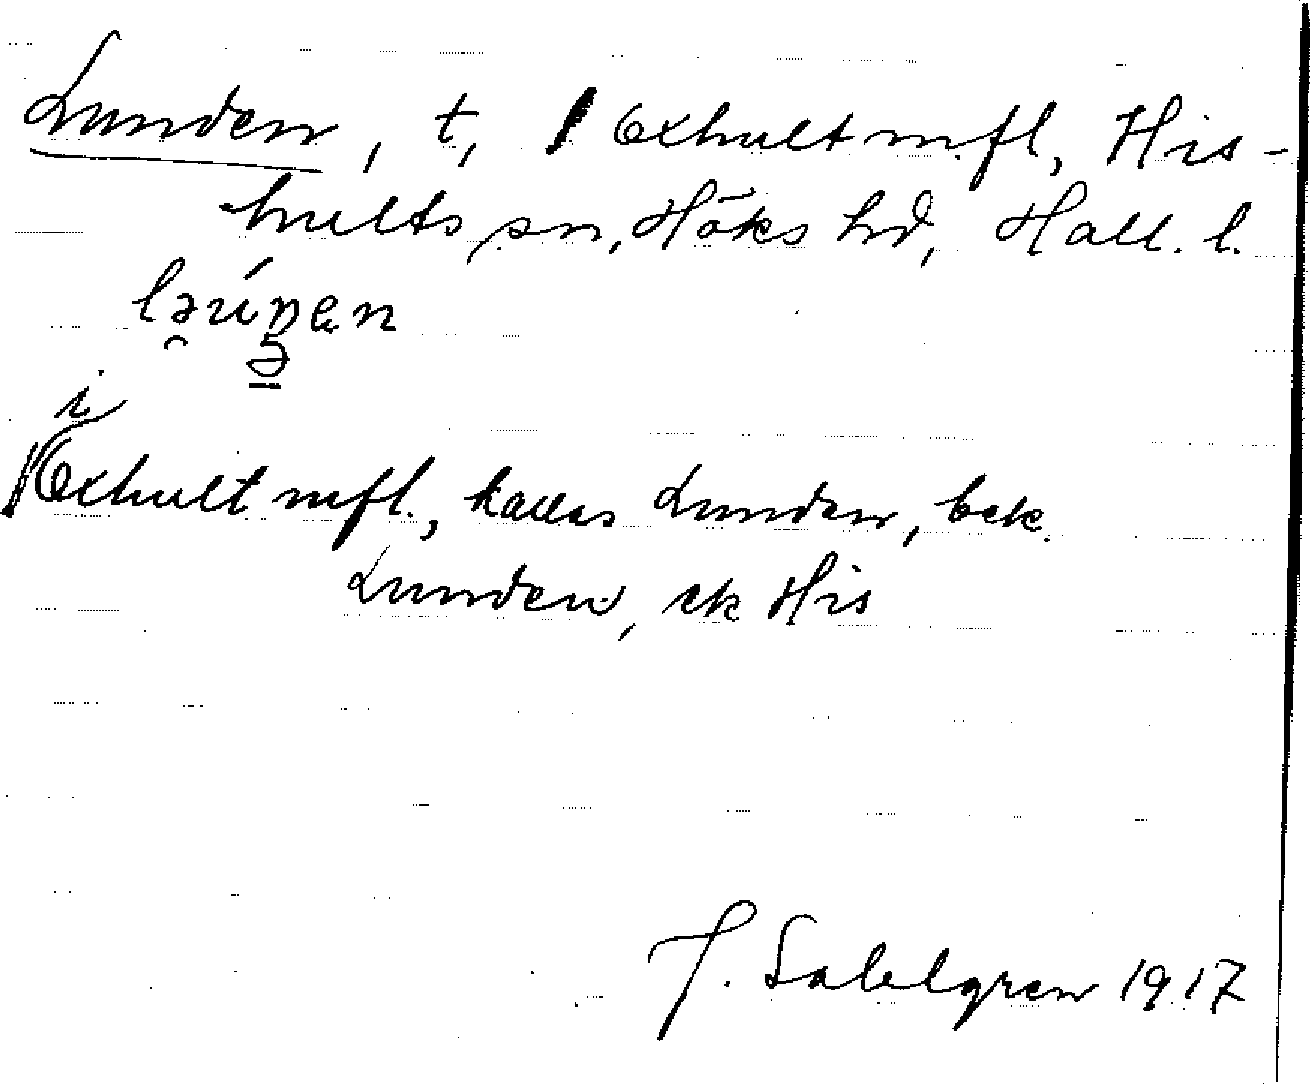 Lunden, t, / Exhult m.fl, His-
hults sn, Höks hd, Hall. l.
i
Exhult mfl., kallas Lunden, bek.
Lunden, ek His
J. Sahlgren 1917